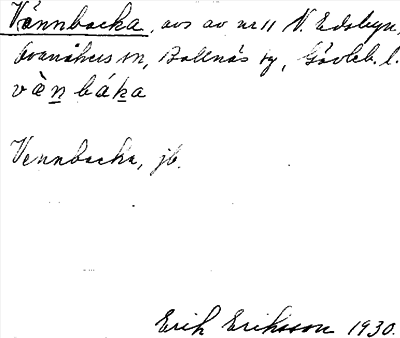 Vännbacka, avs av nr 11 N. Edsbyn,
Ovanåkers sn, Bollnäs tg, Gävleb. l.
vànbáka
Vennbacka, jb.
Erik Eriksson 1930.